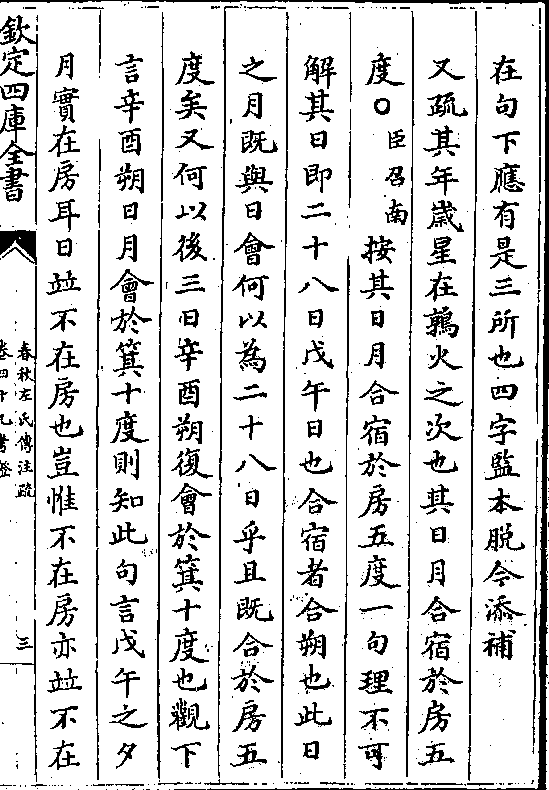 在句下應有是三所也四字監本脫今添補
又疏其年歲星在鶉火之次也其日月合宿於房五
度○臣召南按其日月合宿於房五度一句理不可
解其日即二十八日戊午日也合宿者合朔也此日
之月既與日會何以為二十八日乎且既合於房五
度矣又何以後三日辛酉朔復會於箕十度也觀下
言辛酉朔日月會於箕十度則知此句言戊午之夕
月實在房耳日並不在房也豈惟不在房亦並不在
欽定四庫全書
春秋左氏傳注疏
卷四十九考證
三